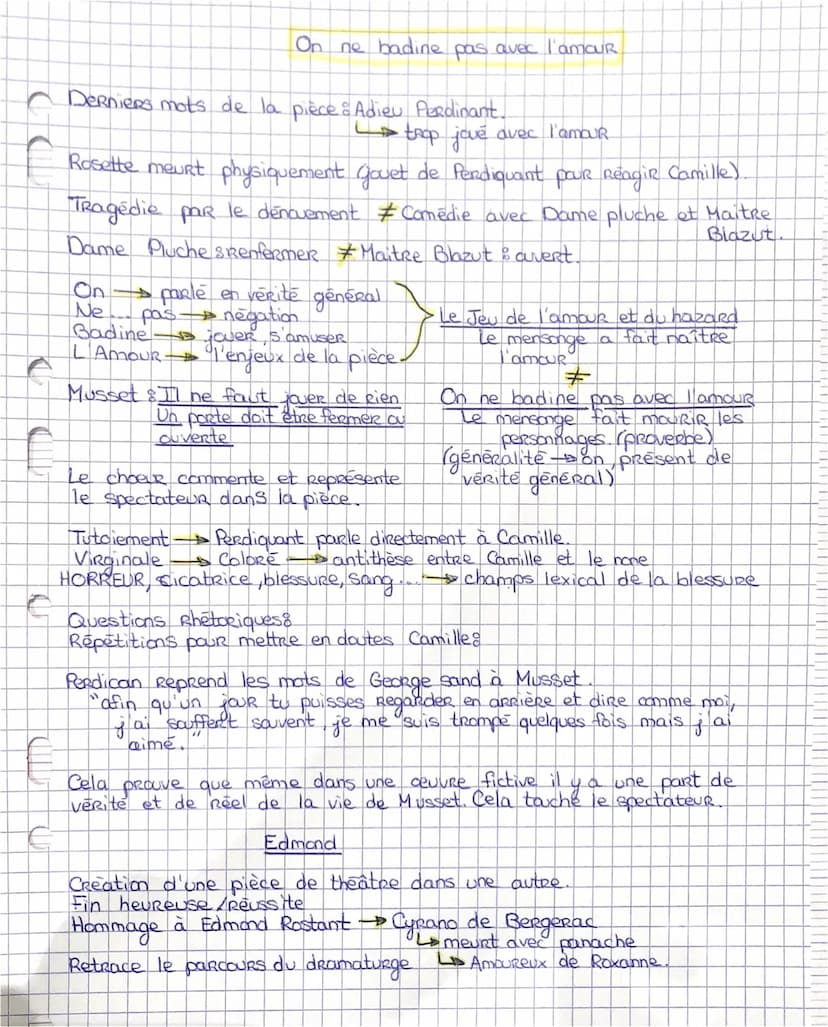 On ne badine pas avec l'amour
Derniers mots de la pièce : Adieu Perdinant.
↳ trop joué avec l'amour
Rosette meurt physiquement (jouet de Perdiquant pour réagir Camille).
Tragédie par le dénouement ≠ Comédie avec Dame pluche et Maitre
Blazut.
Dame Pluche : renfermer ≠ Maitre Blazut : ouvert.
On → parlé en vérité général
Ne... pas → négation
Badine → jouer, s'amuser
L'Amour → l'enjeux de la pièce
Le Jeu de l'amour et du hazard
Le mensonge a fait naître
l'amour
≠
Musset : Il ne faut jouer de rien
Un porte doit être fermer ou
ouverte
On ne badine pas avec l'amour
Le mensonge fait mourir les
personnages. (proverbe)
(généralité → on, présent de
vérité général)
Le choeur commente et représente
le spectateur dans la pièce.
Tutoiement → Perdiquant parle directement à Camille.
Virginale → Coloré → antithèse entre Camille et le none
HORREUR, cicatrice, blessure, sang... → champs lexical de la blessure
Questions Rhétoriques :
Répétitions pour mettre en doutes Camille :
Perdican reprend les mots de George sand à Musset.
"afin qu'un jour tu puisses regarder en arrière et dire comme moi,
j'ai souffert souvent, je me suis trompé quelques fois mais j'ai
aimé."
Cela prouve que même dans une œuvre fictive il y a une part de
vérité et de réel de la vie de Musset. Cela touche le spectateur.
Edmond
Création d'une pièce de théâtre dans une autre.
Fin heureuse / réussite
Hommage à Edmond Rostant → Cyrano de Bergerac
↳ meurt avec panache
Retrace le parcours du dramaturge ↳ Amoureux de Roxanne.